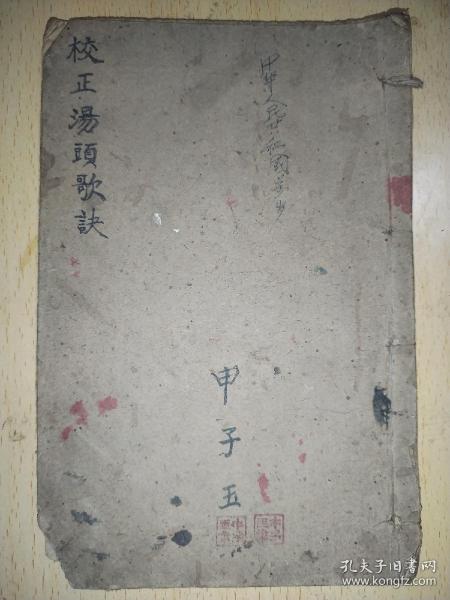 校正湯頭歌訣
中华人民共和國万岁
甲子五
孔夫子旧书网
www.kongfz.com